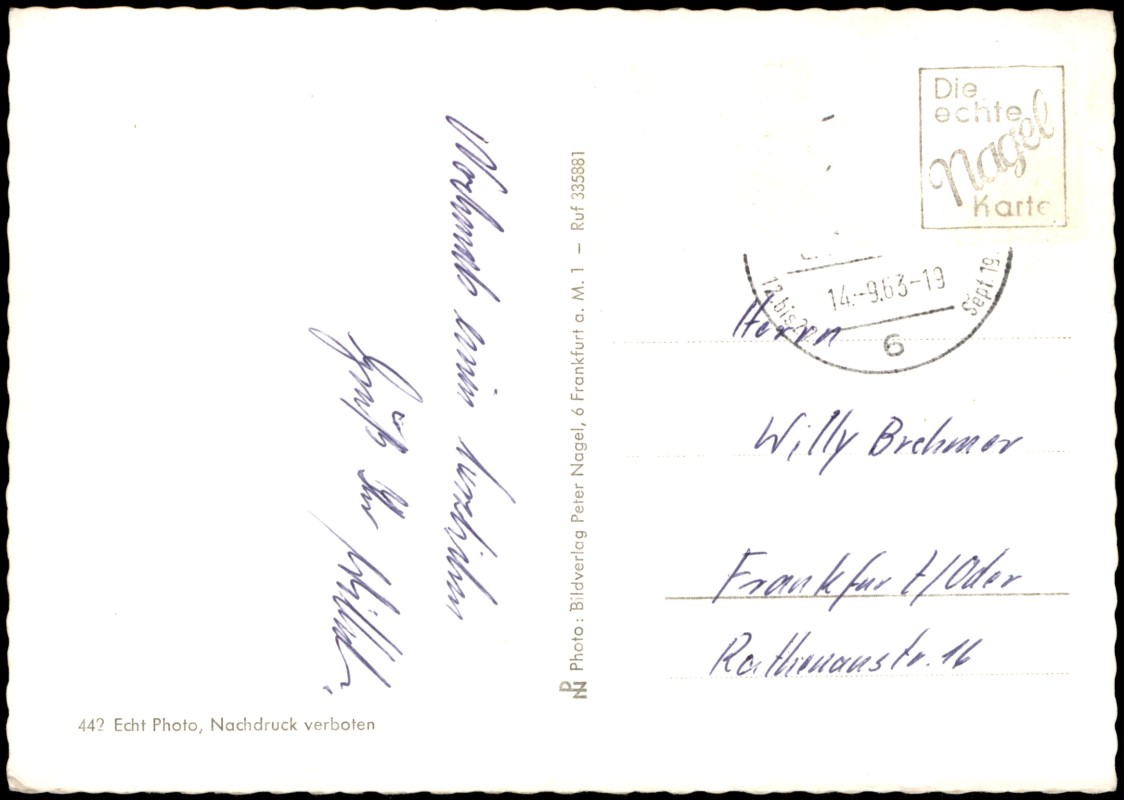 Die
echte
Nagel
Karte
14.-9.63-19
12. bis
Sept 19
6
Herrn
Willy Brehmer
Frankfurt/Oder
Rathenaustr. 16
Photo: Bildverlag Peter Nagel, 6 Frankfurt a. M. 1 – Ruf 335881
PN
442 Echt Photo, Nachdruck verboten
Gruß Ihr